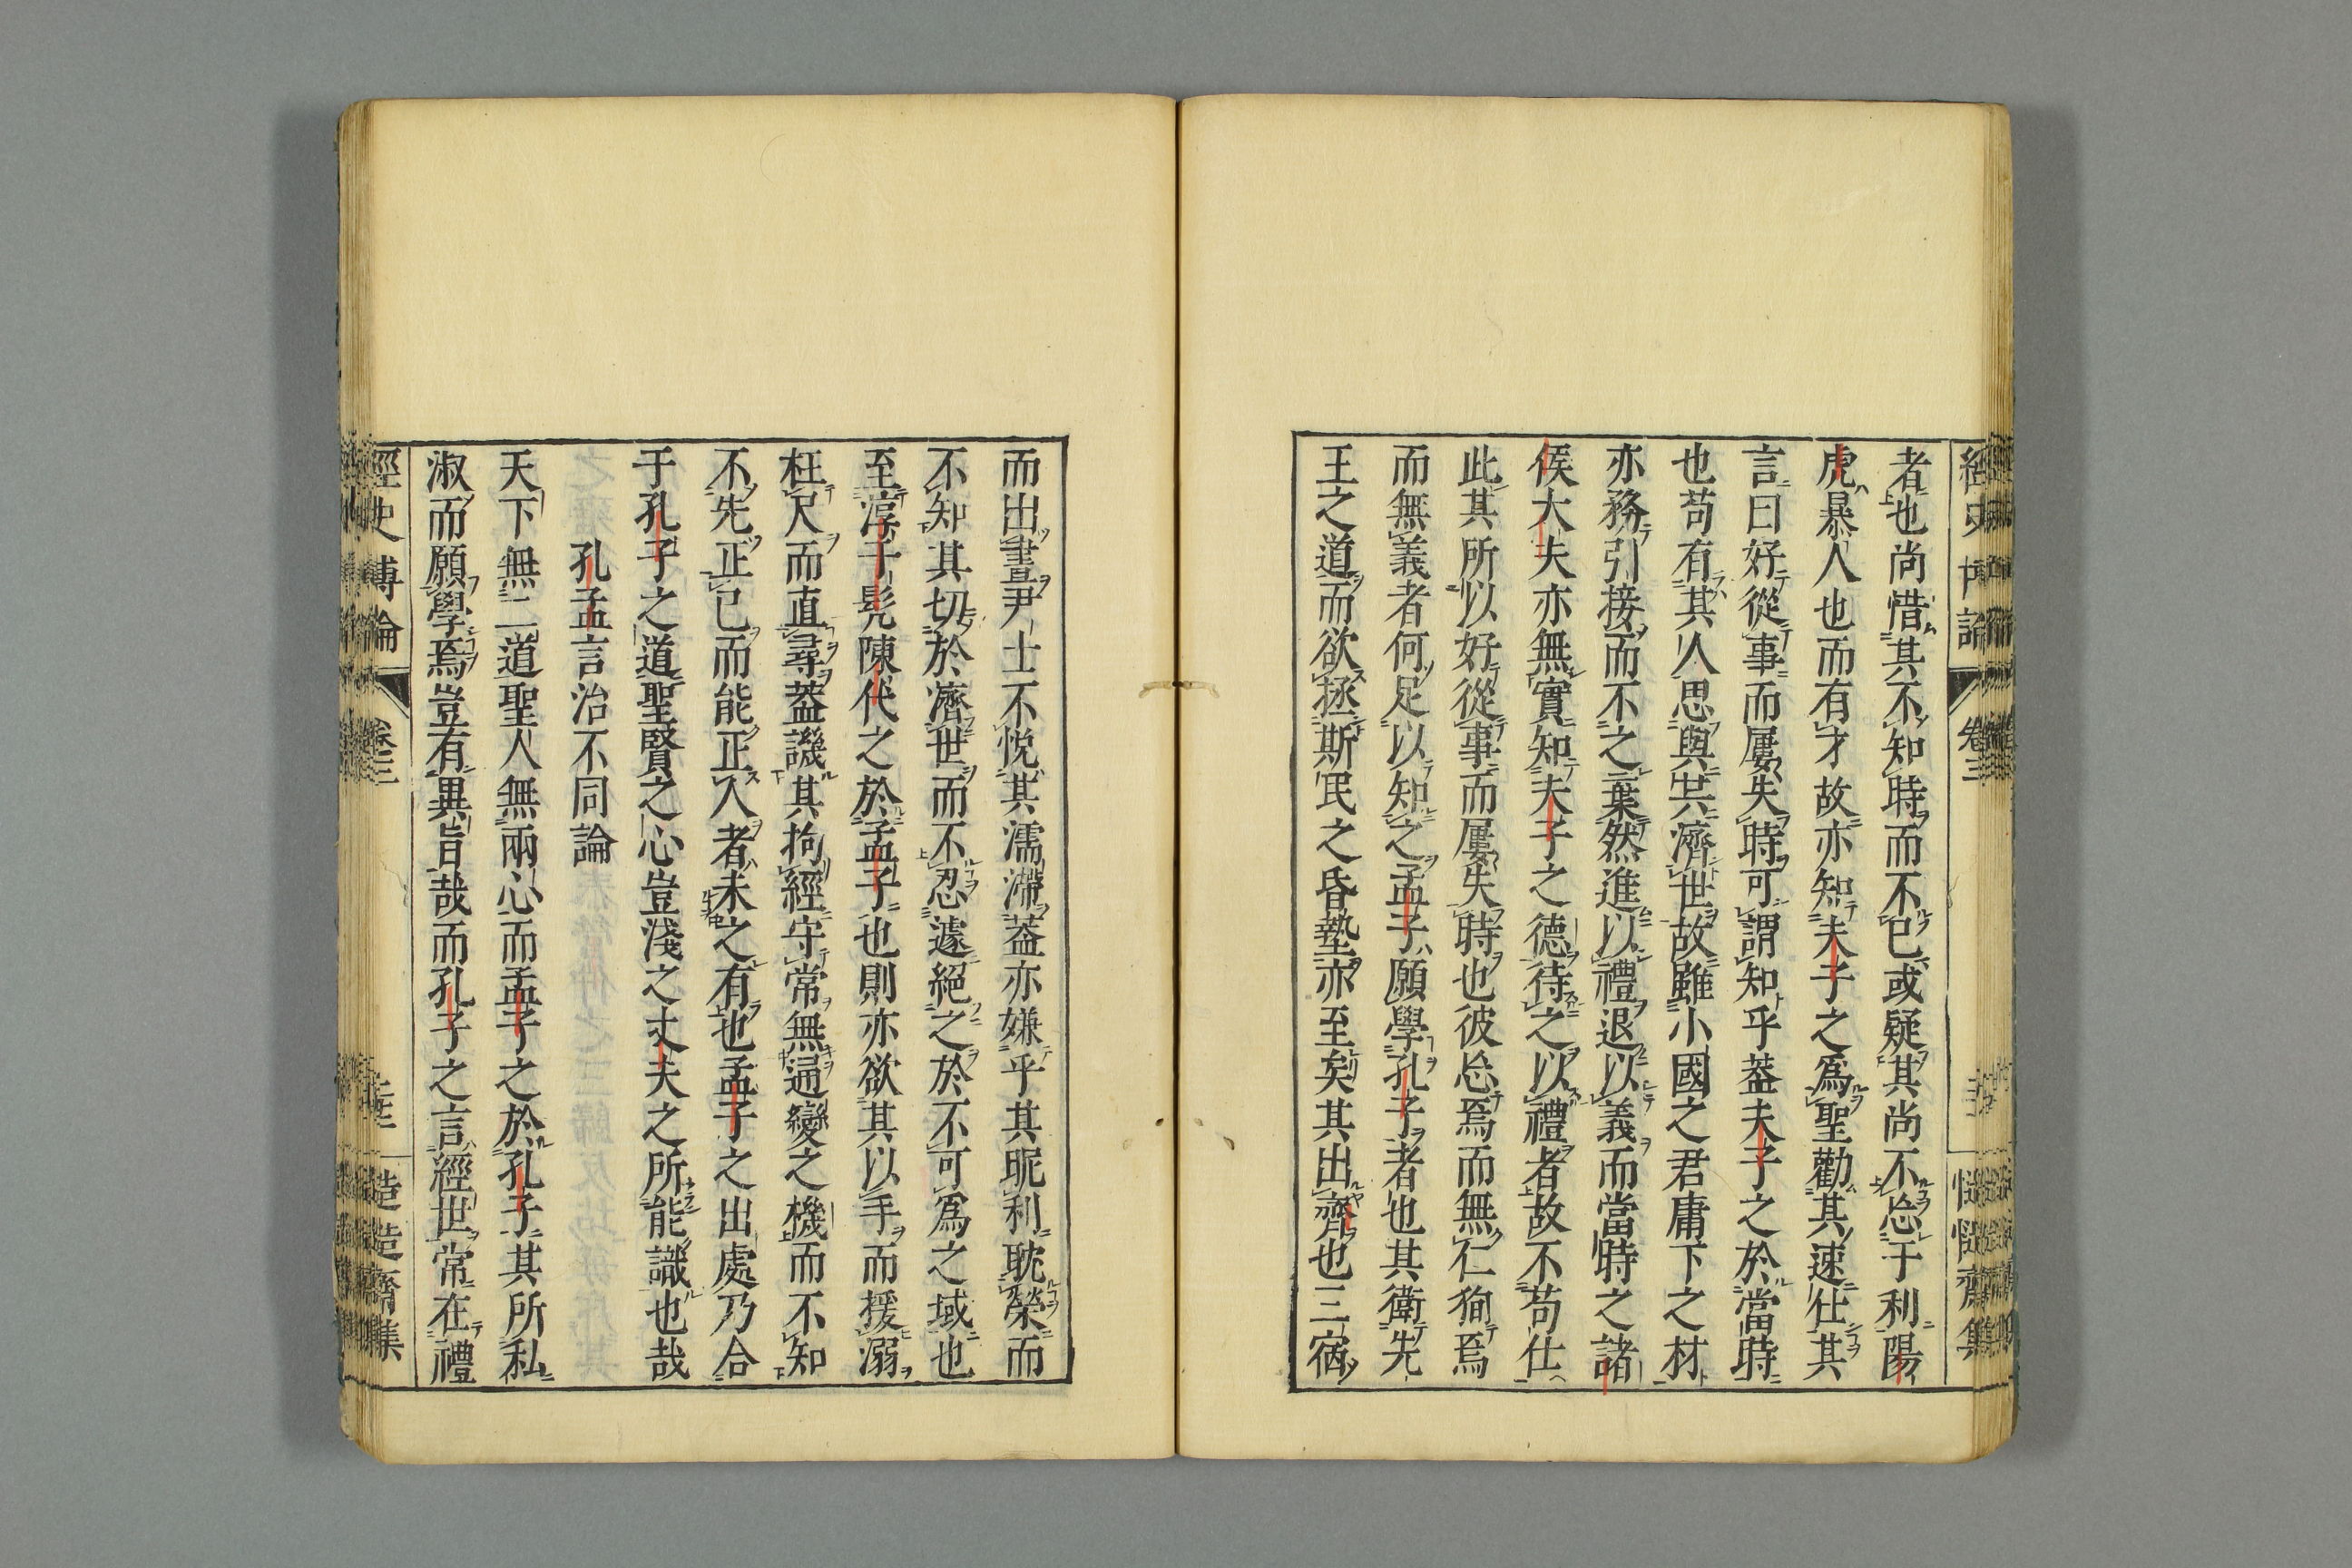 者也尚惜其不知時而不已或疑其尚不忘于利陽
虎暴人也而有才故亦知夫子之爲聖勸其速仕其
言曰好從事而屢失時可謂知乎蓋夫子之於當時
也苟有其人思與共濟世故雖小國之君庸下之材
亦務引接而不之棄然進以禮退以義而當時之諸
侯大夫亦無實知夫子之德待之以禮者故不苟仕
此其所以好從事而屢失時也彼忘焉而無仁狥焉
而無義者何足以知之孟子願學孔子者也其衛先
王之道而欲拯斯民之昏墊亦至矣其出齊也三宿
而出晝尹士不悅其濡滯蓋亦嫌乎其昵利耽榮而
不知其切於濟世而不忍遽絕之於不可爲之域也
至淳于髡陳代之於孟子也則亦欲其以手而援溺
枉尺而直尋蓋譏其拘經守常無通變之機而不知
不先正已而能正人者未之有也孟子之出處乃合
于孔子之道聖賢之心豈淺之丈夫之所能識也哉
孔孟言治不同論
天下無二道聖人無兩心而孟子之於孔子其所私
淑而願學焉豈有異旨哉而孔子之言經世常在禮
經史博論
卷三